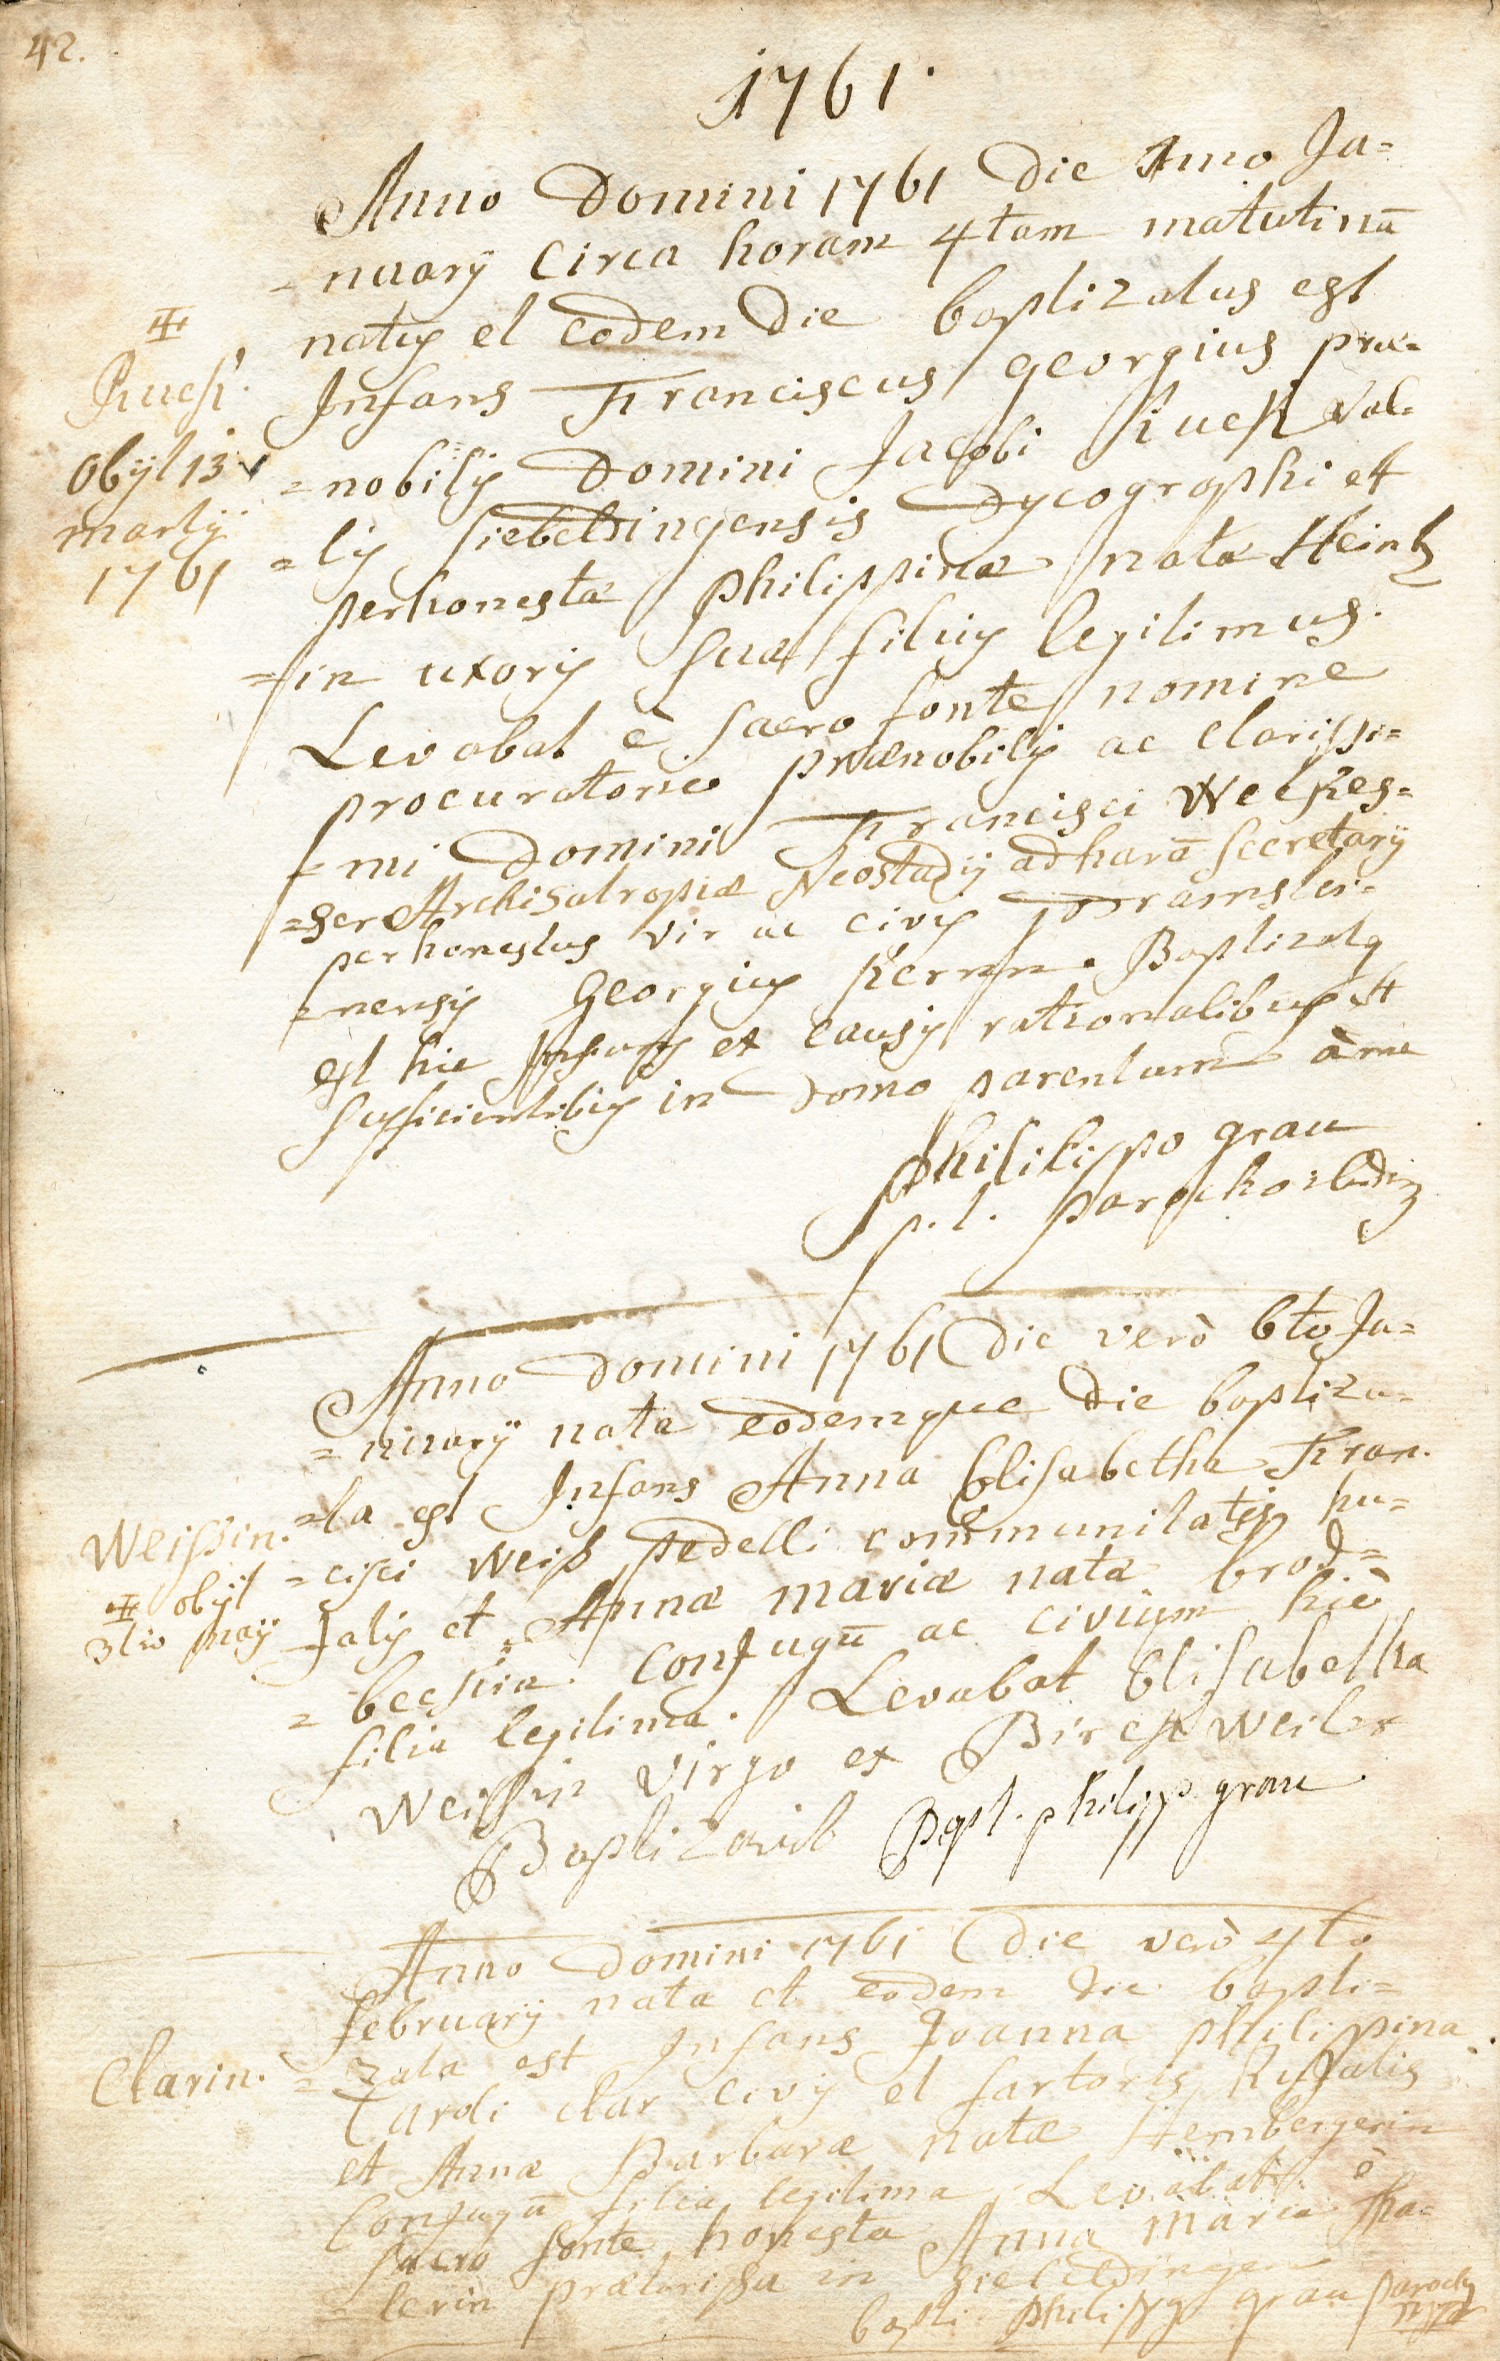 42.
1761.
Anno Domini 1761 Die 1mo Ja=
=nuarÿ circa horam 4tam matutinā
natus et eodem Die baptizatus est
Infans Franciscus georgius præ=
=nobilis Domini Jacobi Ruck Val=
=lis Siebeldingensis Dycographi et
perhonestæ philippinæ natæ Heintz
=in uxoris suæ filius legitimus.
Levabat è sacro fonte nomine
procuratorio prænobilis ac clarissi=
=mi Domini Francisci Welkes=
=ser Archisatrapiæ Neostadÿ ad harā Secretarÿ
perhonestus vir ac civis
=nensis Georgius Kernn. Baptizatq
est hic Infans ex causis rationalibus et
sufficientibus in Domo parentum à me
phililippo grau
p. t. parocho
+
Ruck.
obÿt 13
martÿ
1761
Anno Domini 1761 Die verò 6to Ja=
=nuarÿ nata eodemque Die baptiza=
=ta est Infans Anna Elisabetha Fran.
=cisci Weiß pedelli communitatis hu=
=jatis et Annæ mariæ natæ brod=
=beckin. Conjugū ac civium hic
filia legitima. Levabat Elisabetha
Weissin virgo ex Birckweiler
Baptizavit philipp grau
Weissin.
+ obÿt
3tio maÿ
Anno Domini 1761 Die verò 4to
februarÿ nata et eodem die bapti=
=zata est Infans Joanna philippina
Caroli clar civis et sartoris hujatis
et Annæ Barbaræ natæ Hembergerin
Conjugū filia legitima. Levabat è
sacro fonte honesta Anna maria Tha=
=lerin prætorissa in Siebeldingen
bapti. philippo grau
Clarin.